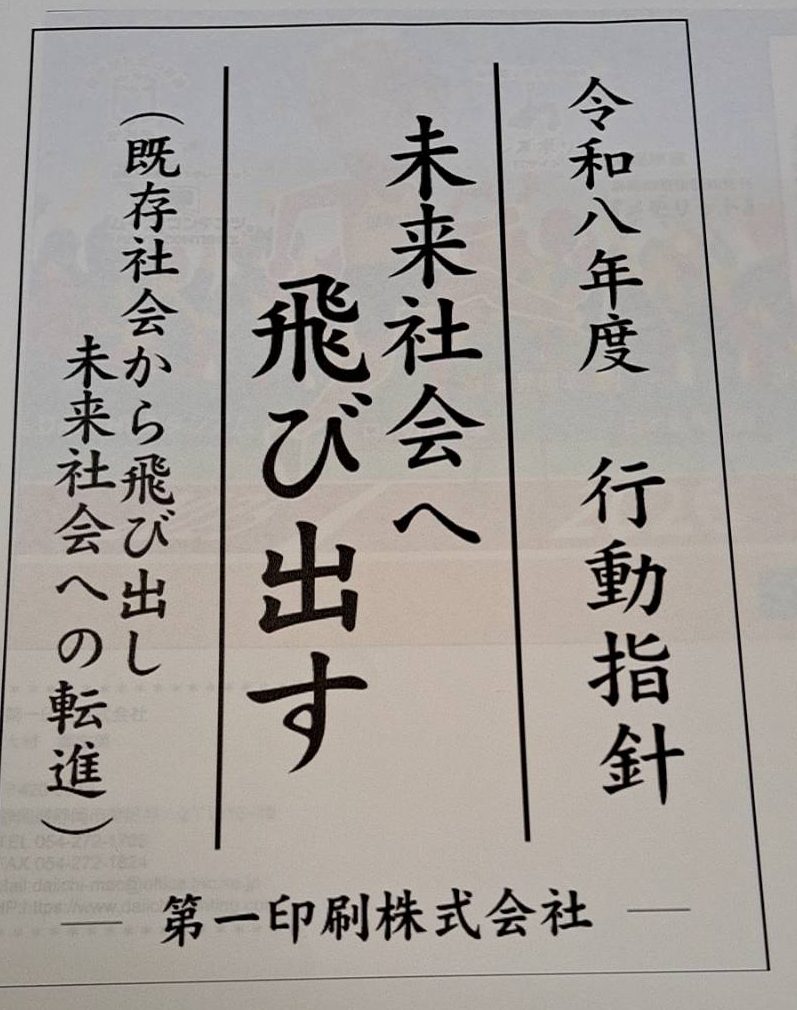 令和八年度　行動指針
未来社会へ
飛び出す
（既存社会から飛び出し
未来社会への転進）
第一印刷株式会社